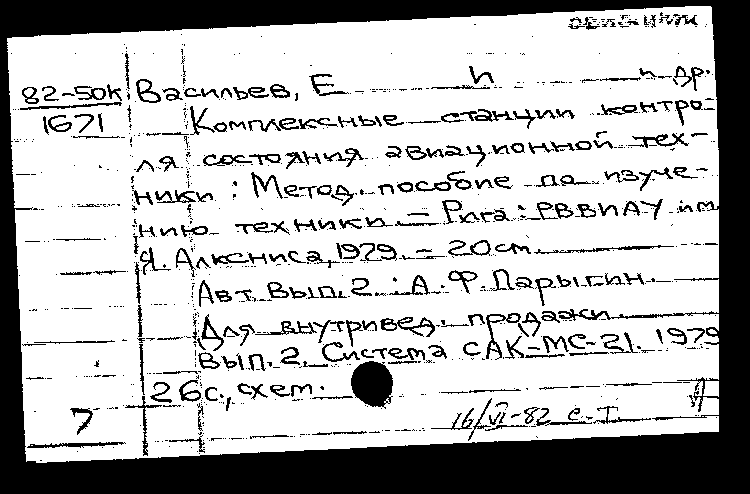 82-50К Васильев, Е П и др.
1671 Комплексные станции контро-
ля состояния авиационной тех-
ники : Метод. пособие по изуче-
нию техники. – Рига : РВВИАУ им.
Я. Алксниса, 1979. – 20 см.
Авт. Вып. 2 : А. Ф. Парыгин.
Для внутривед. продажи.
Вып. 2. Система САК-МС-21. 1979
26 с., схем.
7
16/VI-82 С-Т.